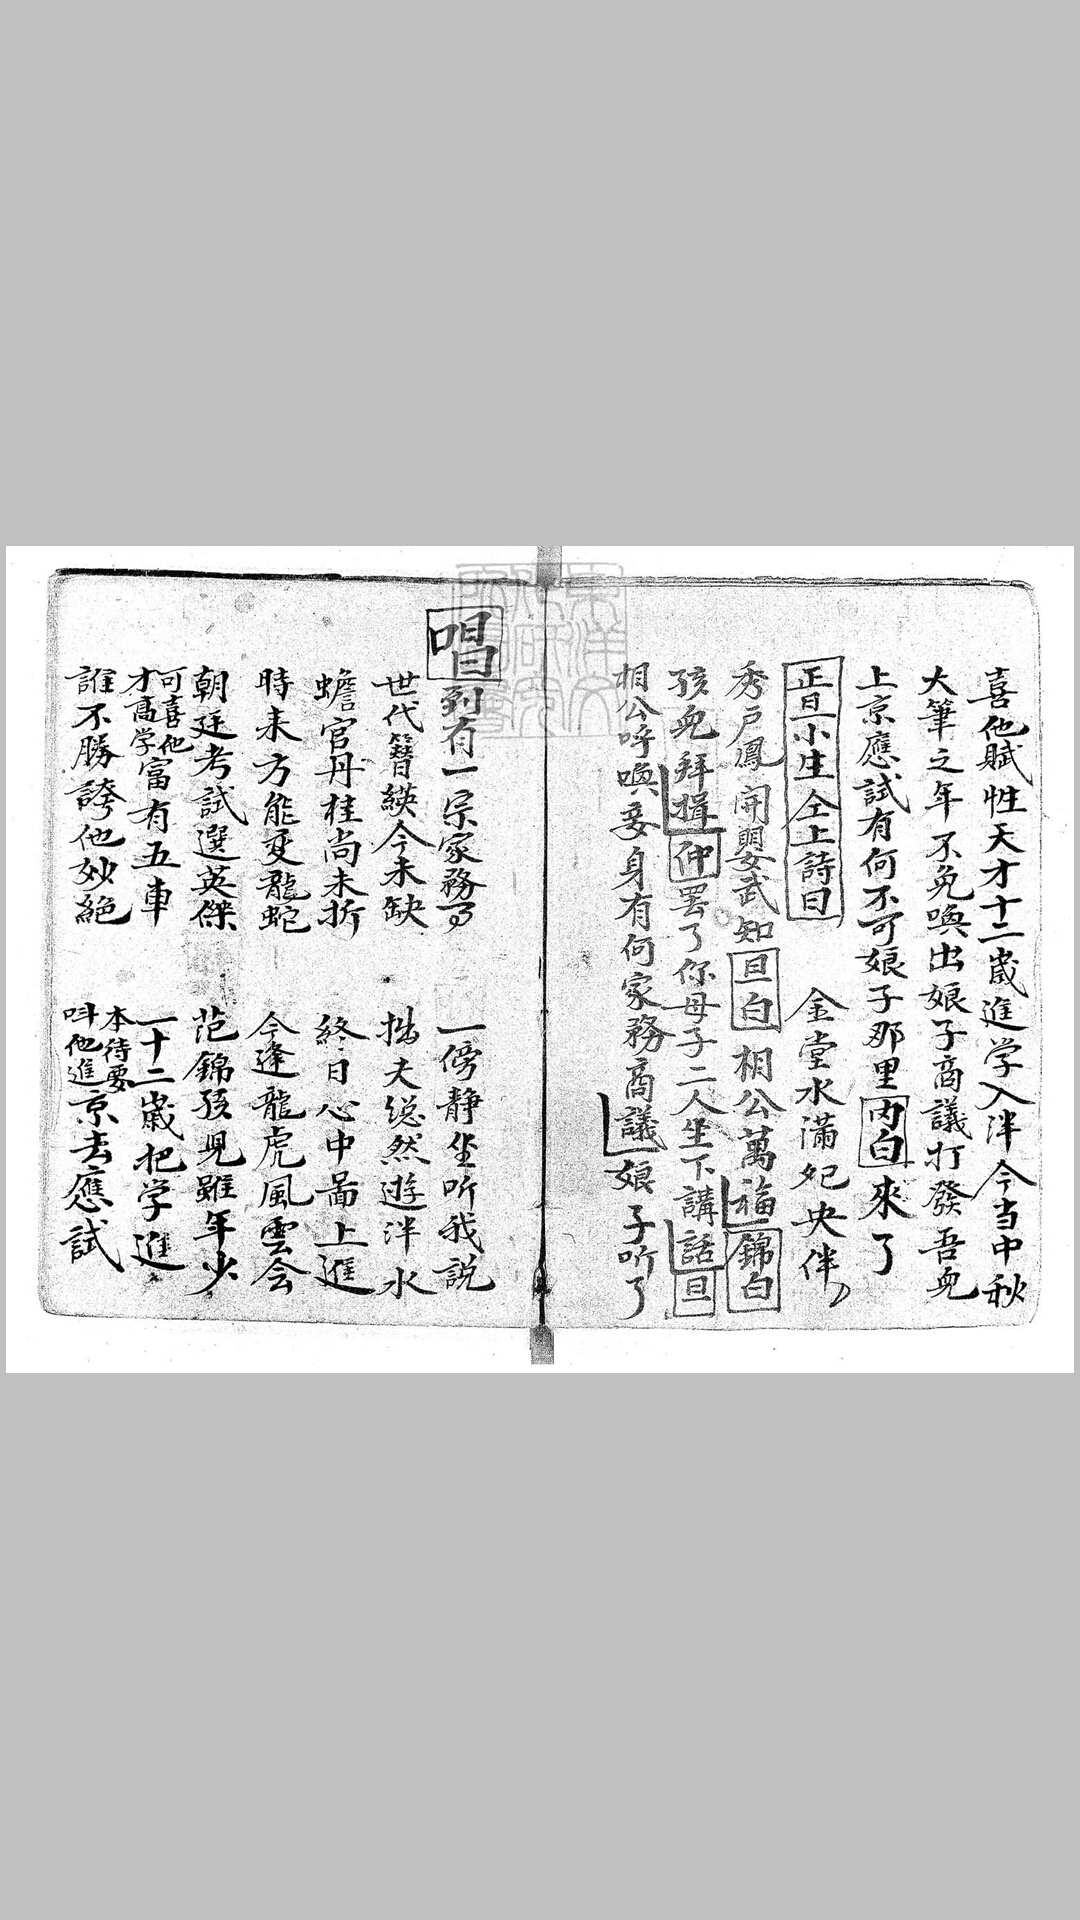 喜他賦性天才十二歲進学入泮今当中秋
大筆之年不免喚出娘子商議打發吾兒
上京應試有何不可娘子那里內白來了
正旦小生仝上詩曰 金堂水滿妃央伴
秀戸鳳開興女武知旦白相公萬福錦白
孩兒拜揖仲罢了你母子二人坐下講話旦
相公呼喚妾身有何家務商議娘子听了
唱到有一宗家務事 一傍靜坐听我説
世代簪纓今未缺 拙夫総然遊泮水
蟾宫丹桂尚未折 終日心中啚上進
時未方能变龍蛇 今逢龍虎風雲会
朝廷考試選英傑 范錦孩児雖年少
可喜他才高学富有五車 一十二歲把学進
誰不勝誇他妙絕 本待要呌他進京去應試